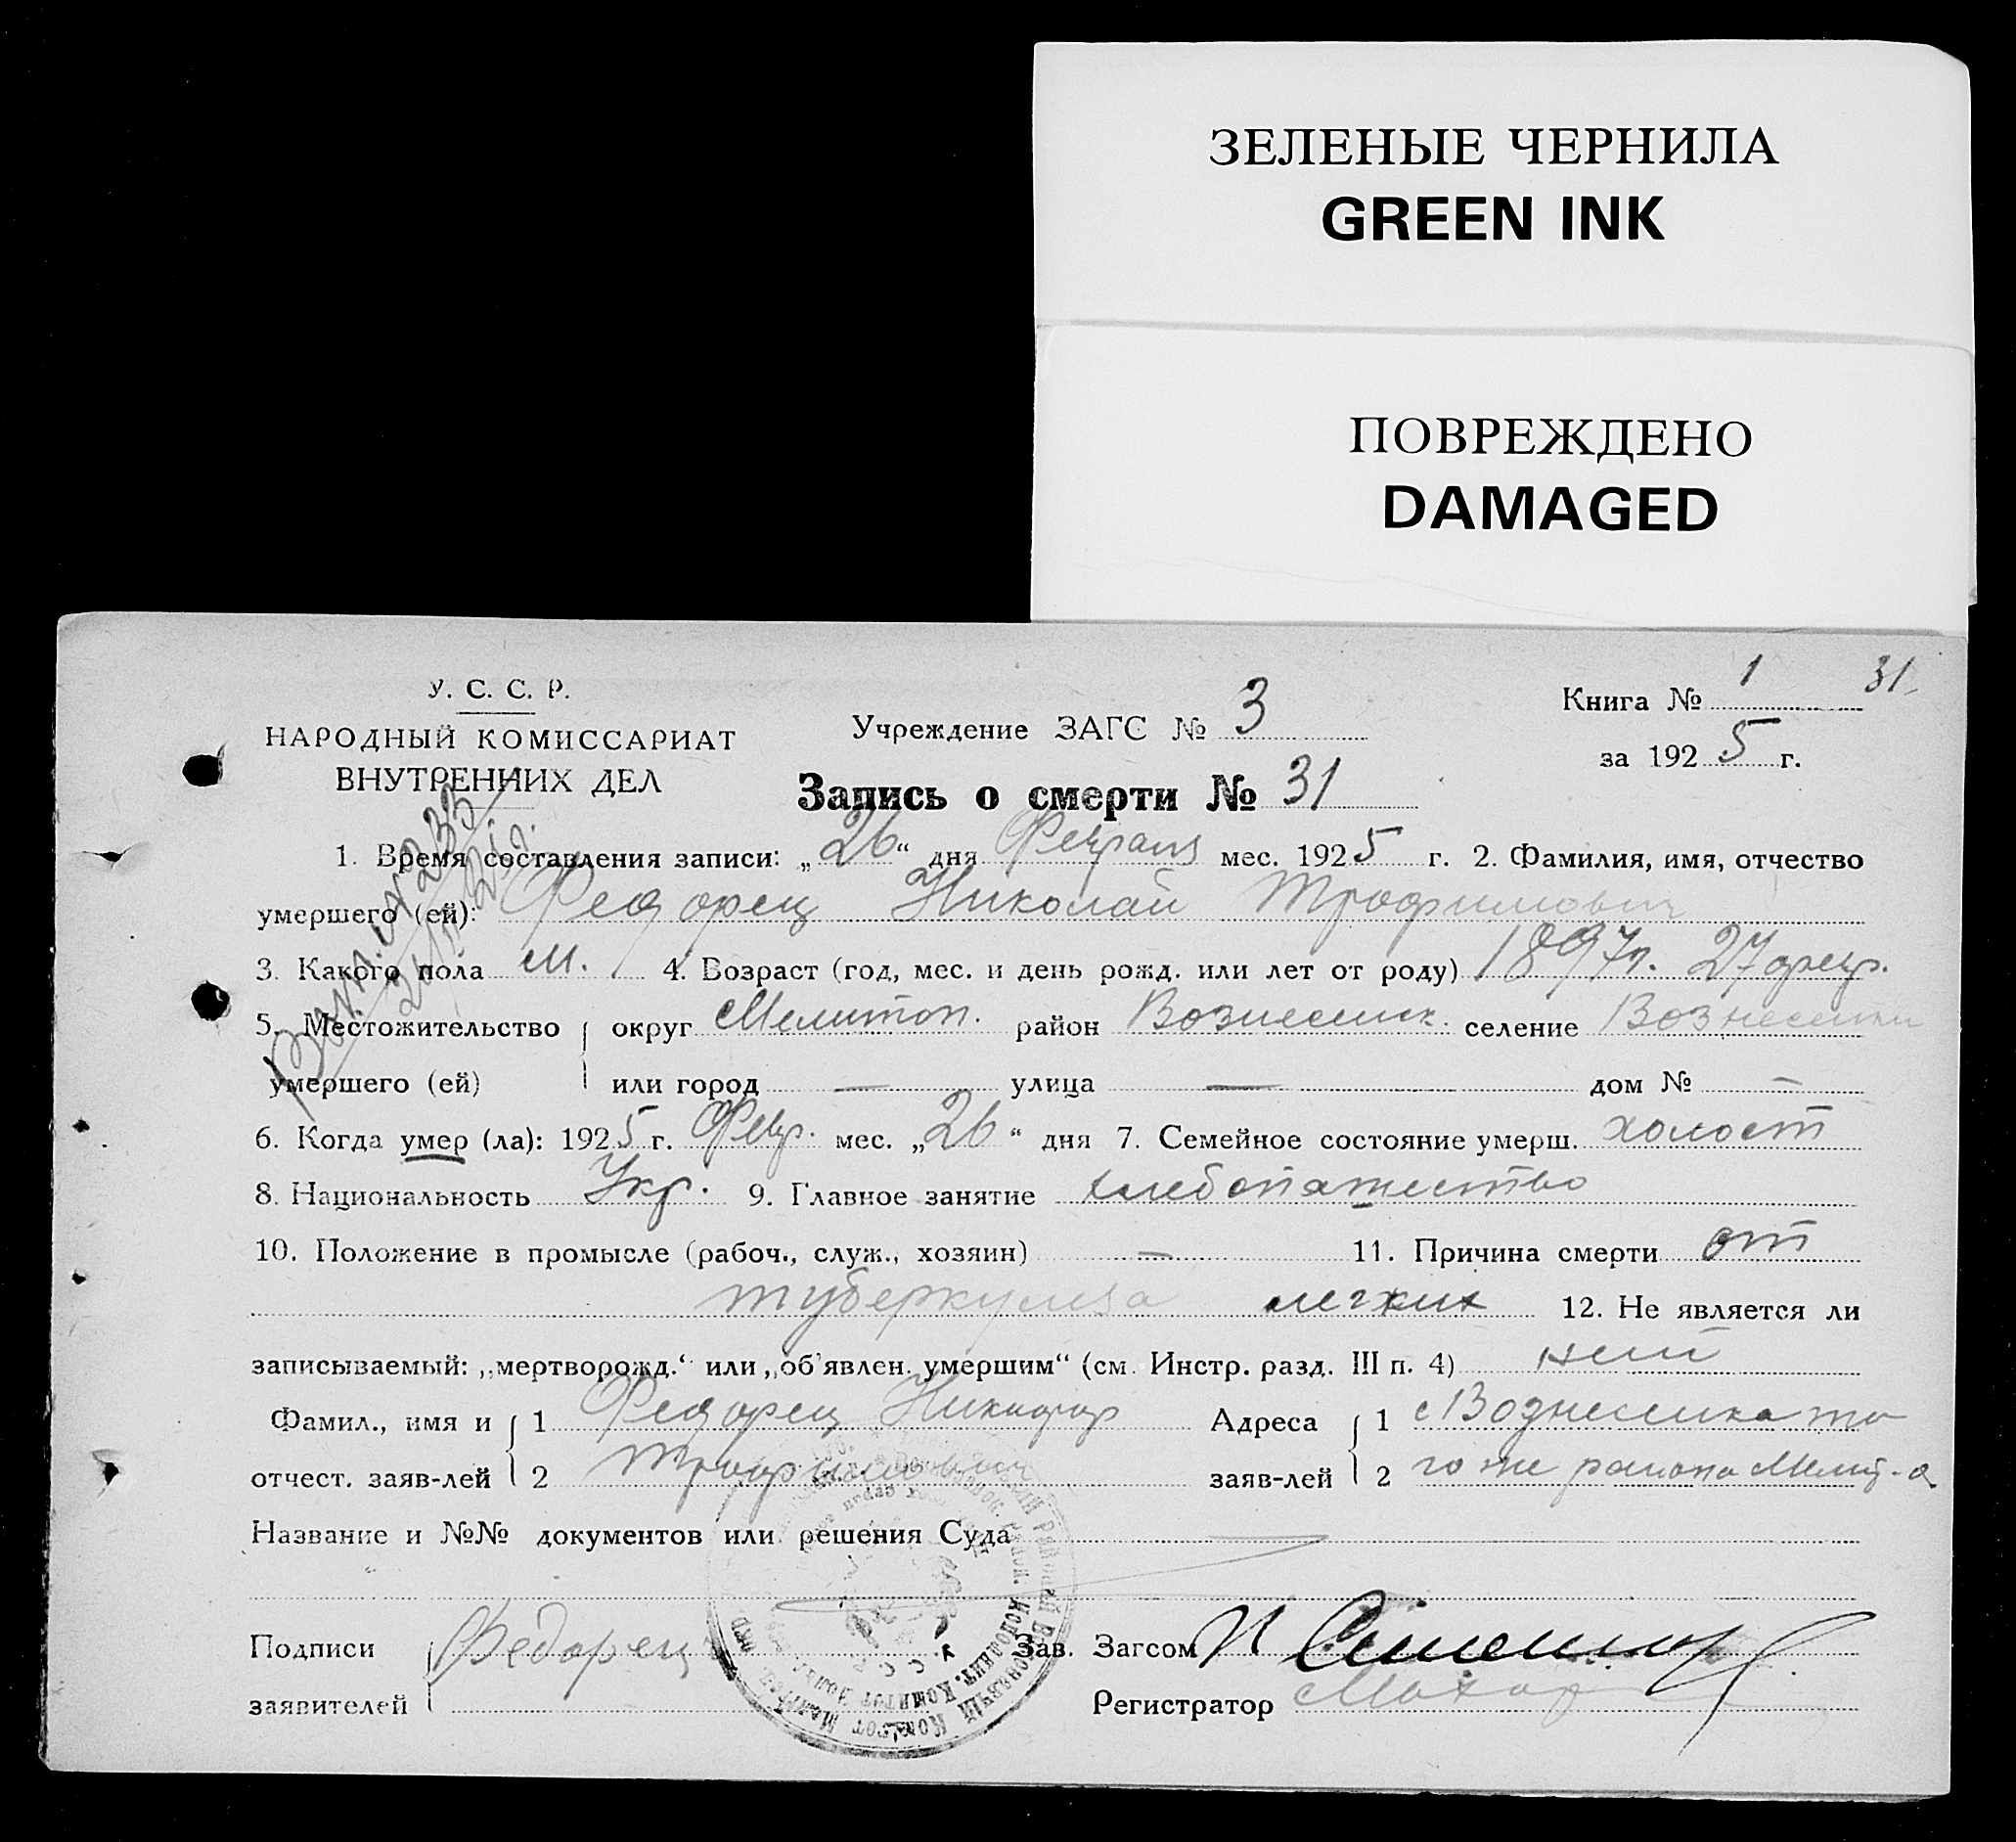 ЗЕЛЕНЫЕ ЧЕРНИЛА
GREEN INK
ПОВРЕЖДЕНО
DAMAGED
У. С. С. Р.
НАРОДНЫЙ КОМИССАРИАТ
ВНУТРЕННИХ ДЕЛ
Учреждение ЗАГС № 3
Книга № 1 31
за 1925 г.
Запись о смерти № 31
1. Время составления записи: „26“ дня мес. 1925 г. 2. Фамилия, имя, отчество
умершего (ей): Федорец Николай Трофимович
3. Какого пола м. 4. Возраст (год, мес. и день рожд. или лет от роду) 1897г. 27 февр.
5. Местожительство округ Мелитоп. район Вознесенск. селение Вознесенки
умершего (ей) или город — улица — дом № —
6. Когда умер (ла): 1925 г. Февр. мес. „26“ дня 7. Семейное состояние умерш. холост
8. Национальность Укр. 9. Главное занятие хлебопашество
10. Положение в промысле (рабоч., служ., хозяин) — 11. Причина смерти от
туберкулеза легких 12. Не является ли
записываемый: „мертворожд.“ или „об’явлен. умершим“ (см. Инстр. разд. III п. 4) нет
Фамил., имя и 1 Федорец Никифор Адреса 1 с Вознесенка то
отчест. заяв-лей 2 Трофимович заяв-лей 2 го же района
Название и №№ документов или решения Суда
Подписи Федорец Зав. Загсом
заявителей Регистратор